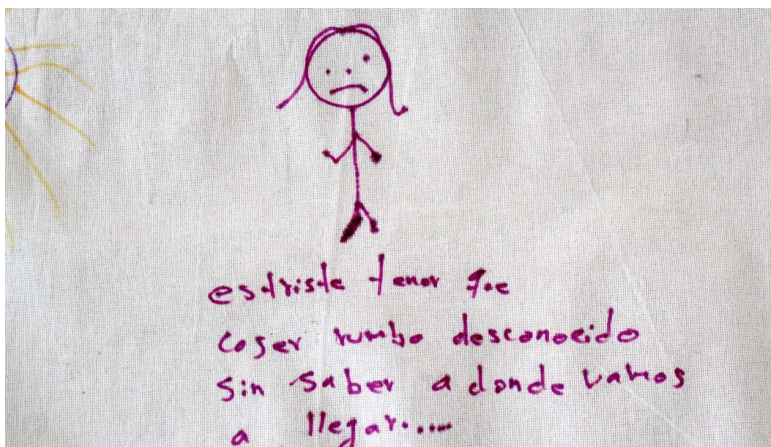 es triste tener que
coger rumbo desconocido
sin saber a donde vamos
a llegar....